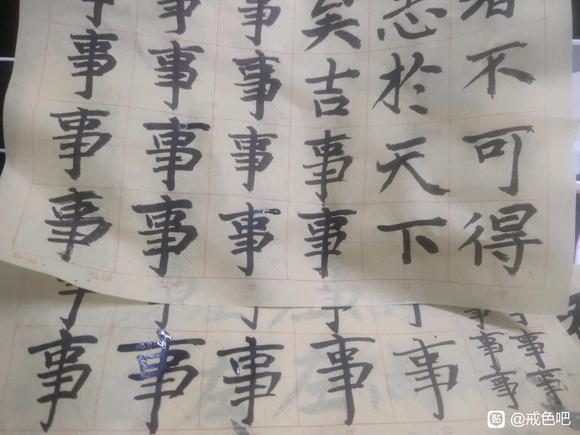 者不可得
志於天下
矣吉事事
事事事事
事事事事
事事事事
事事事
事事事
事
事
事
事
事
贴 @戒色吧